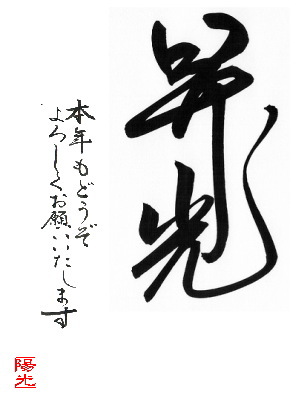 昇光
本年もどうぞ
よろしくお願いいたします
陽光